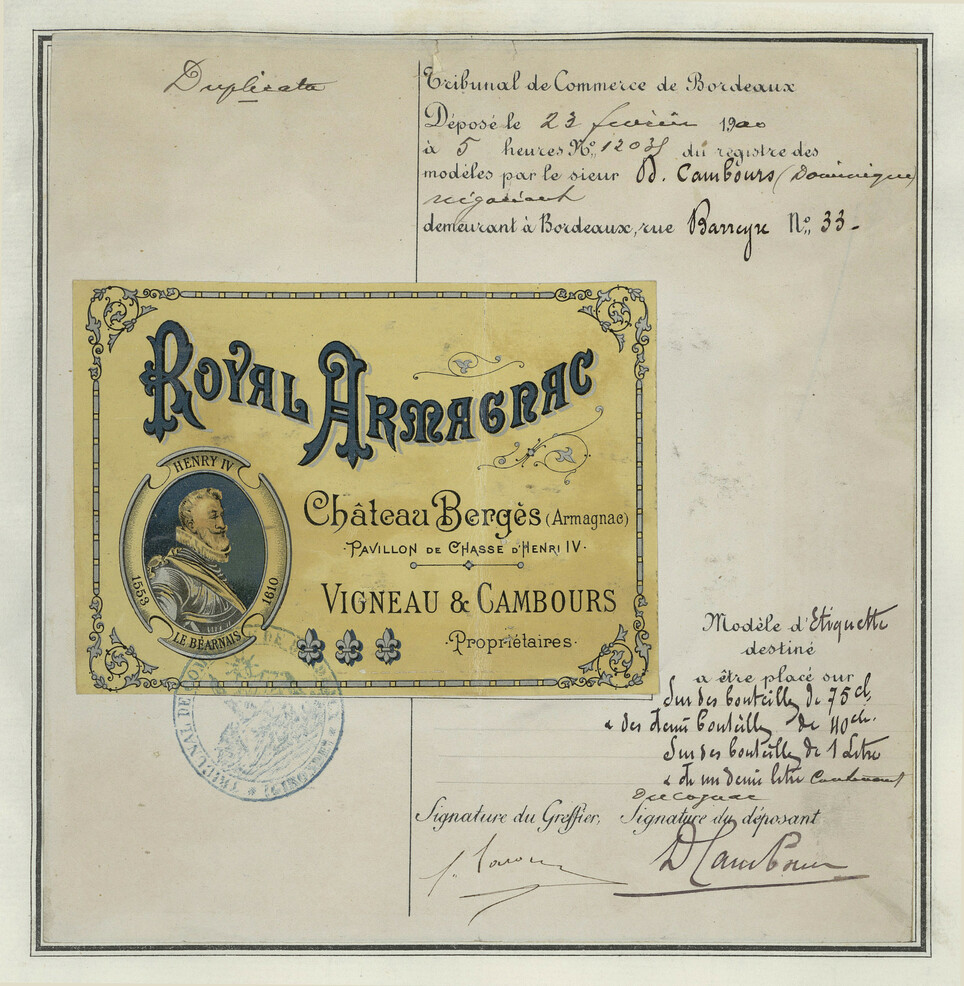 Duplicata
Tribunal de Commerce de Bordeaux
Déposé le 23 février 1900
à 5 heures No, 12035 du registre des
modèles par le sieur D. Cambours (Dominique)
négociant
demeurant à Bordeaux, rue Barreyre No, 33-
ROYAL ARMAGNAC
HENRY IV
1553
1610
LE BÉARNAIS
Château Bergès (Armagnac)
·PAVILLON DE CHASSE D'HENRI IV·
VIGNEAU & CAMBOURS
·Propriétaires·
TRIBUNAL DE COMMERCE DE
Modèle d'Etiquette
destiné
a être placé sur
Sur des bouteilles de 75 cl,
& des demi bouteilles de 40 cl.
Sur des bouteilles de 1 Litre
& de un demi litre Contenant
Du cognac
Signature du Greffier, Signature du déposant
D Cambours